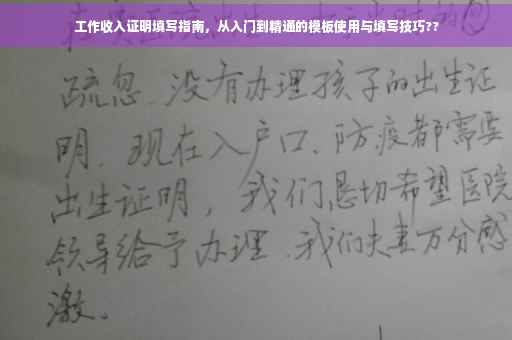 工作收入证明填写指南，从入门到精通的模板使用与填写技巧??
疏忽、没有办理孩子的出生证
明．现在入户口、防疫都需要
出生证明，我们恳切希望医院
领导给予办理．我们夫妻万分感
激。